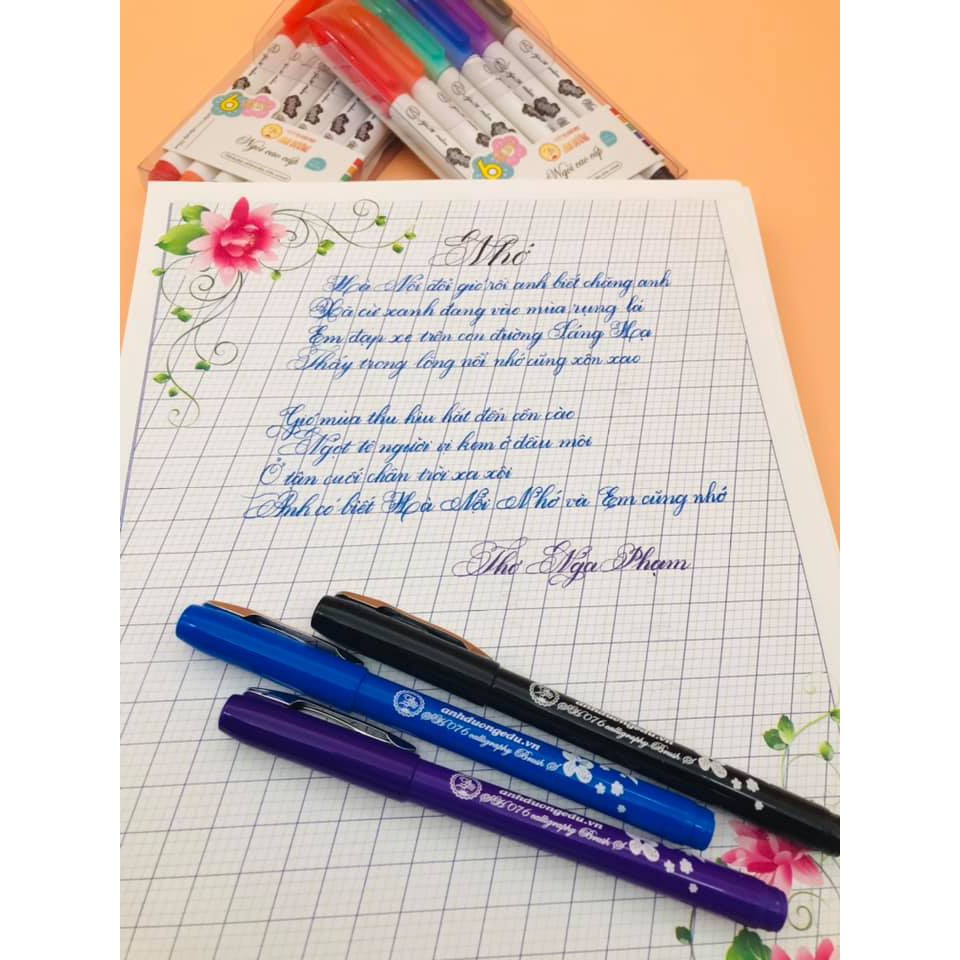 6
6
ÁNH DƯƠNG
Ngòi cao cấp
Ngòi cao cấp
Nhớ
Hà Nội đổi gió rồi anh biết chăng anh
Xà cừ xanh đang vào mùa rụng lá
Em đạp xe trên con đường Láng Hạ
Thấy trong lòng nỗi nhớ cũng xôn xao
Gió mùa thu hiu hắt đến cồn cào
Ngọt tê người vị kem ở đầu môi
Ở tận cuối chân trời xa xôi
Anh có biết Hà Nội Nhớ và Em cũng nhớ
Thơ Nga Phạm
anhduongedu.vn
SH 076 calligraphy Brush S
anhduongedu.vn
SH 076 calligraphy Brush S
anhduongedu.vn
SH 076 calligraphy Brush S